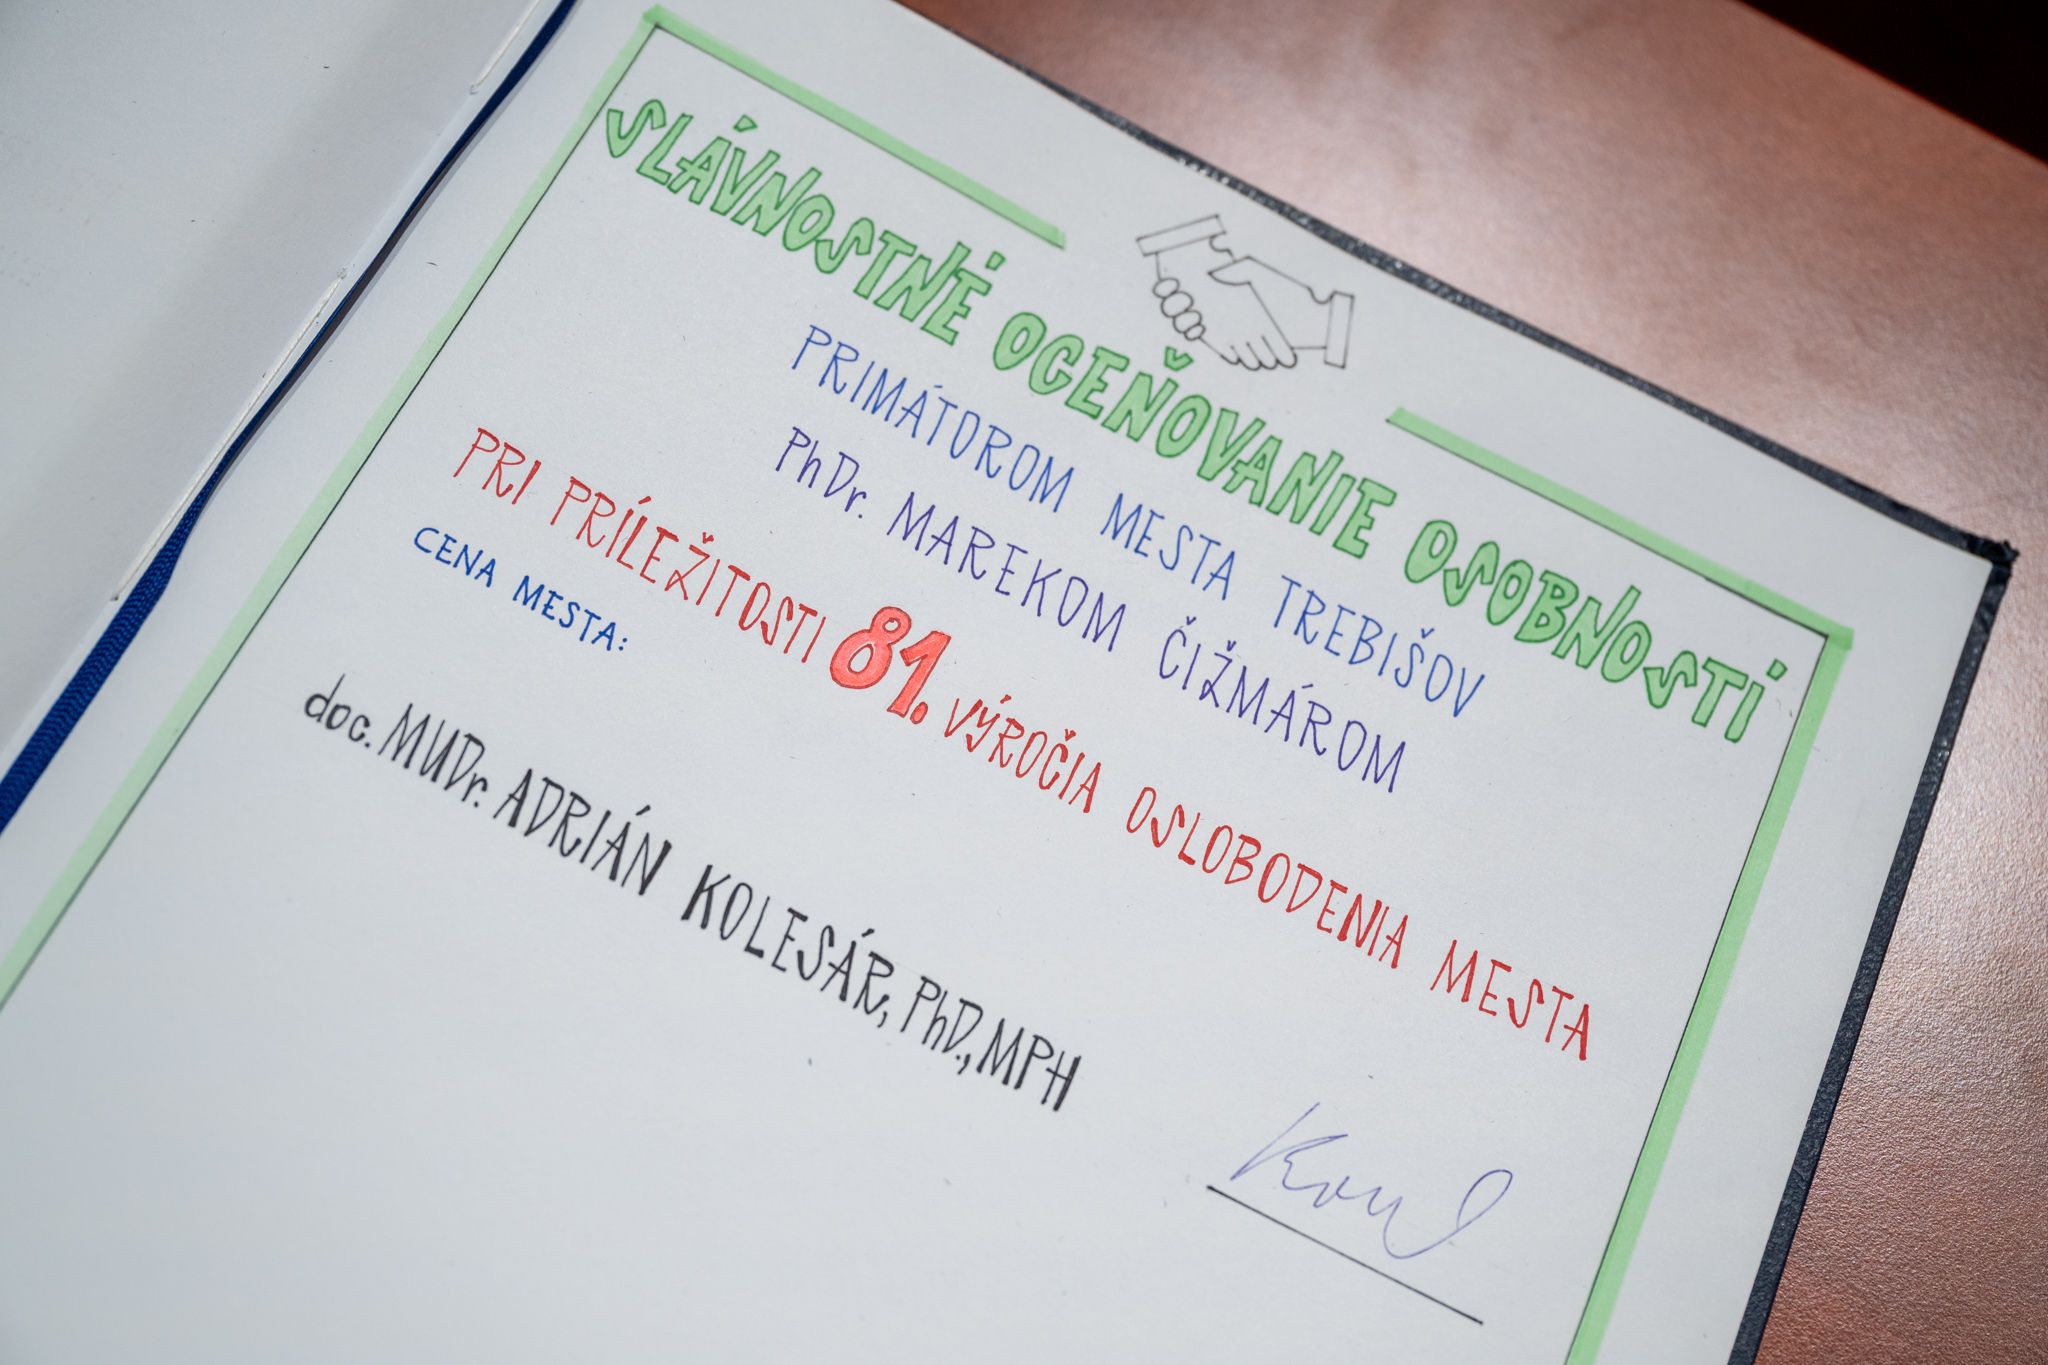 SLÁVNOSTNÉ OCEŇOVANIE OSOBNOSTÍ
PRIMÁTOROM MESTA TREBIŠOV
PhDr. MAREKOM ČIŽMÁROM
PRI PRÍLEŽITOSTI 81. VÝROČIA OSLOBODENIA MESTA
CENA MESTA:
doc. MUDr. ADRIÁN KOLESÁR, PhD., MPH